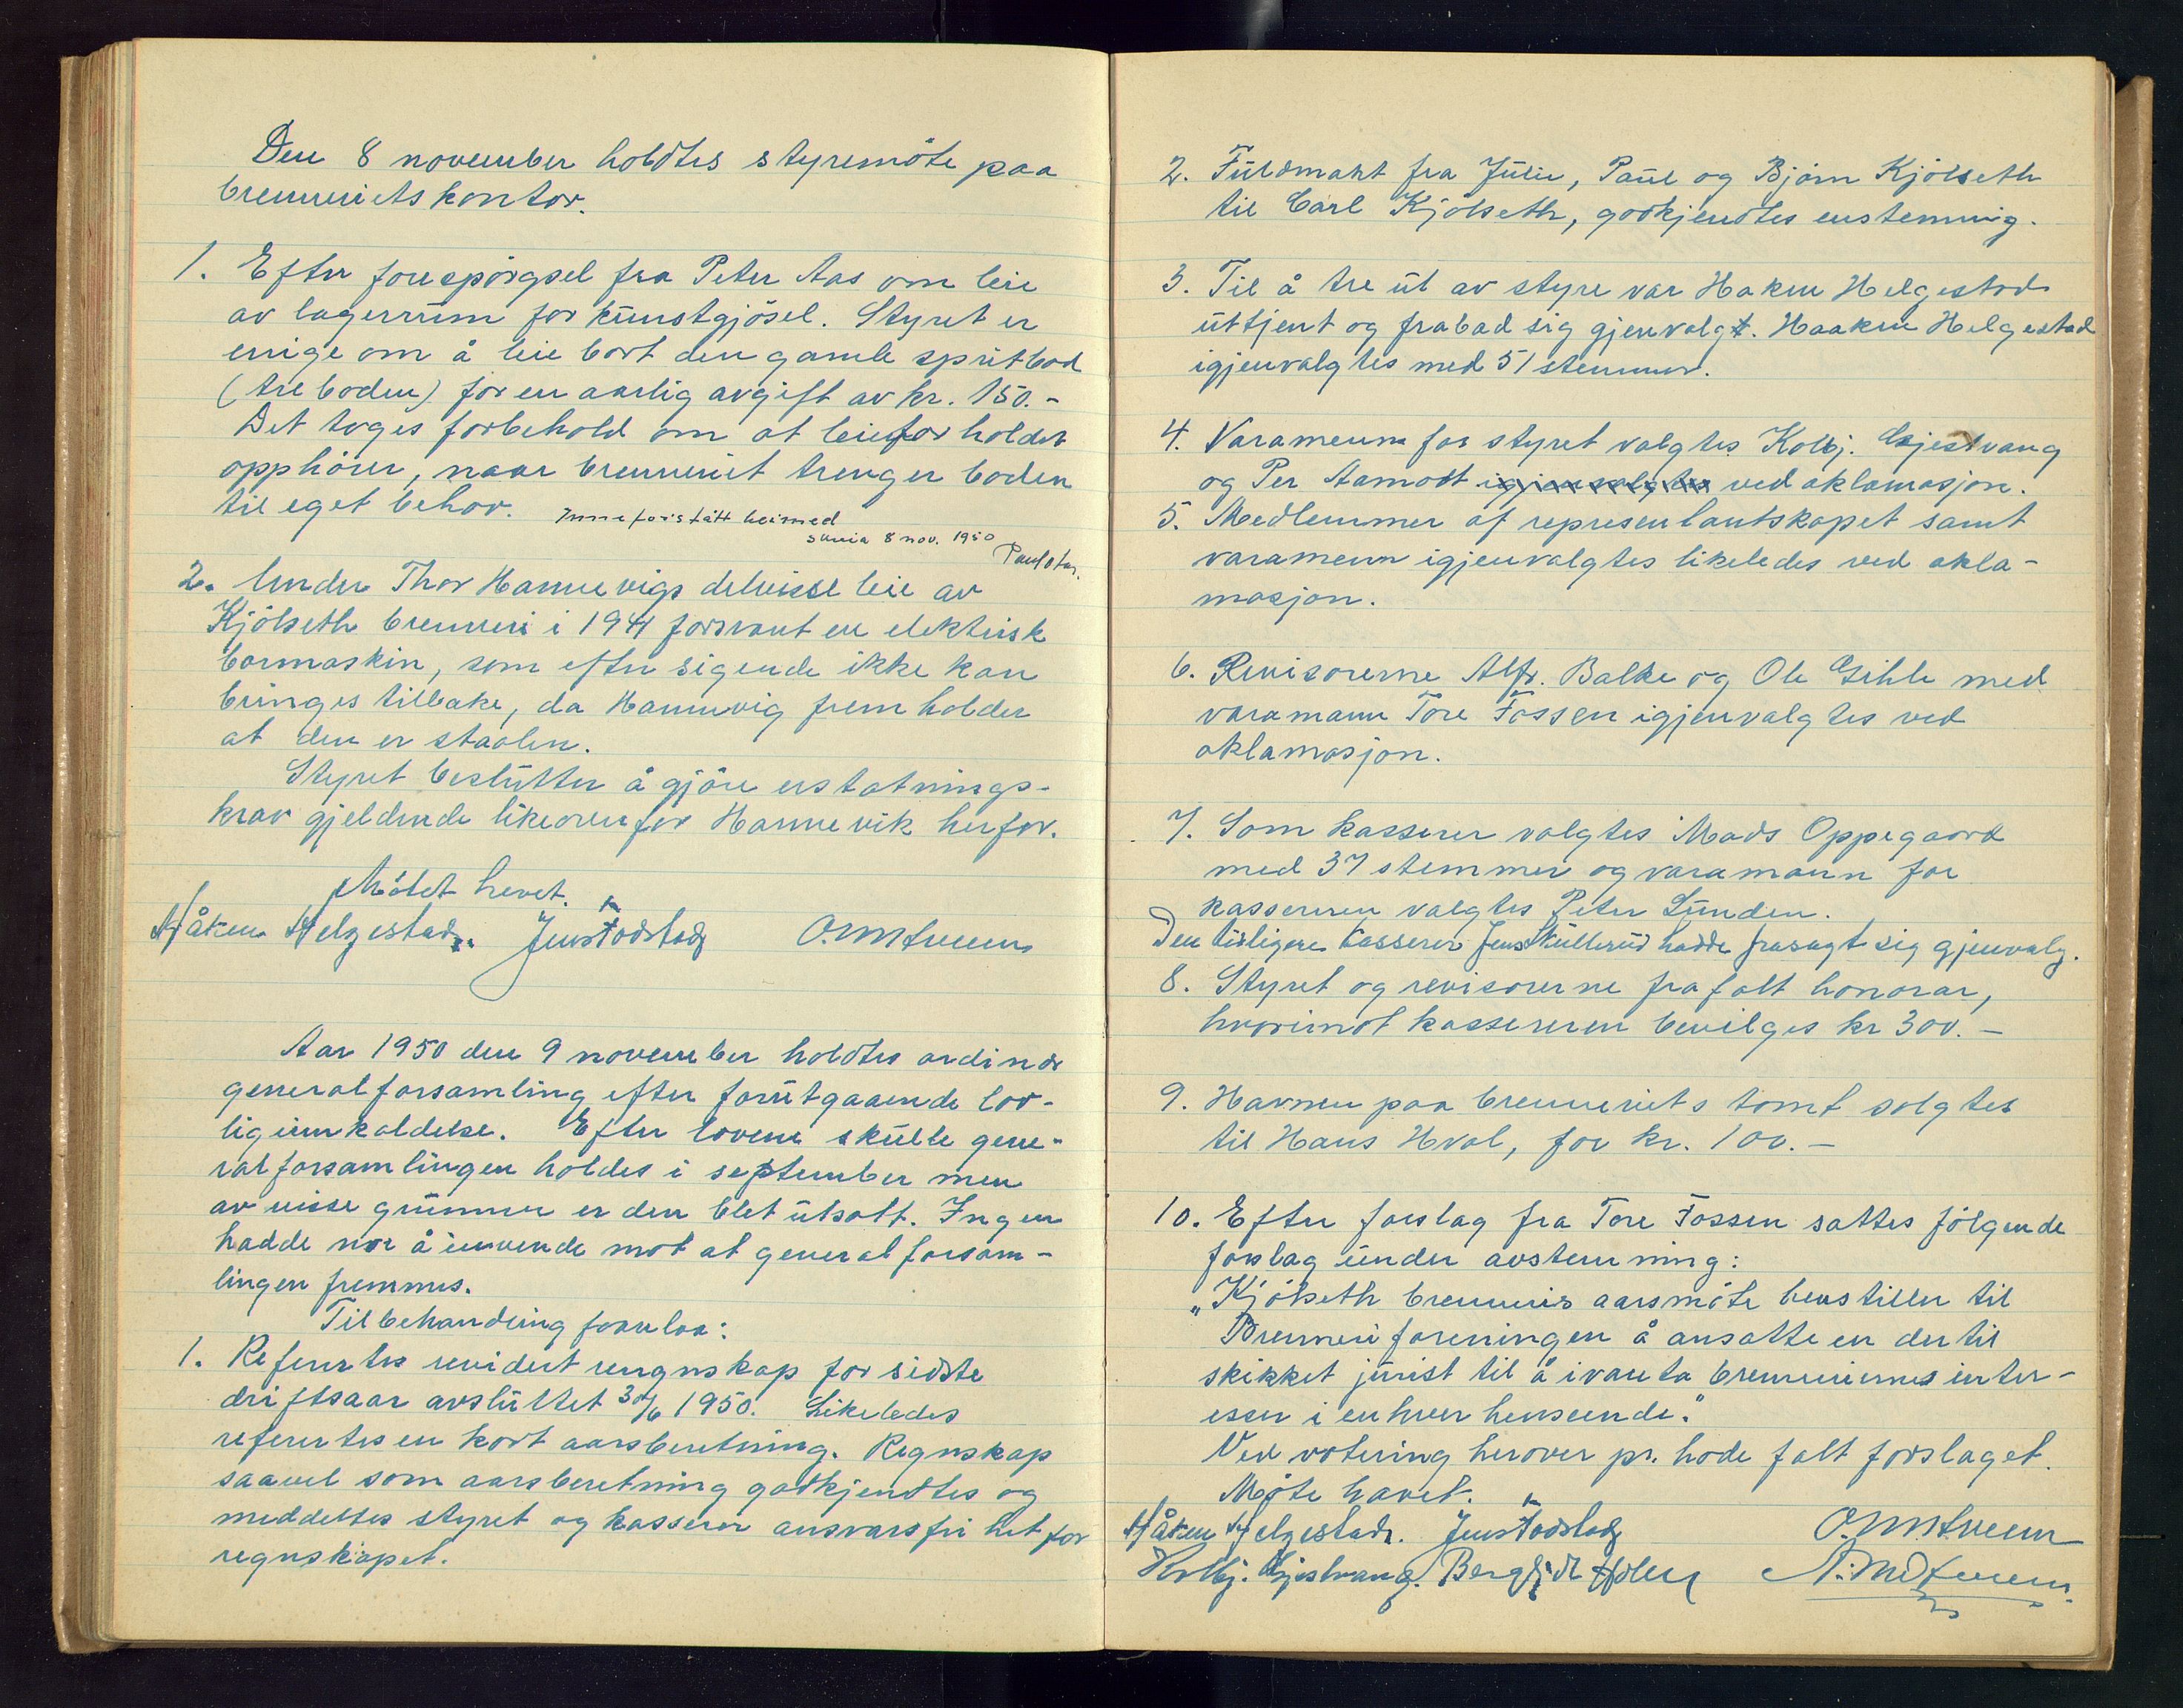 Den 8 november holdtes styremöte paa
brenneriets kontor.
1. Efter forespörgsel fra Peter Aas om leie
av lagerrum for kunstgjösel. Styret er
enige om å leie bort den gamle spritbod
(treboden) for en aarlig avgift av kr. 150.-
Det toges forbehold om at leieforholdet
opphörer, naar brenneriet trenger boden
til eget behov.
Inneforstått hermed
8 nov. 1950
2. Under Thor Hannevigs delvisse leie av
Kjölseth brenneri i 1941 forsvant en elektrisk
bormaskin, som efter sigende ikke kan
bringes tilbake, da Hannevig fremholder
at den er staalen.
Styret beslutter å gjöre erstatnings-
krav gjeldende likeovenfor Hannevik herfor.
Mötet hevet.
Håken Helgestad. Jens Todstad
Aar 1950 den 9 november holdtes ordinær
generalforsamling efter forutgaaende lov-
lig innkaldelse. Efter lovene skulle gene-
ralforsamlingen holdes i september men
av visse grunner er den blet utsatt. Ingen
hadde noe å invende mot at generalforsam-
lingen fremmes.
Til behandling forelaa:
1. Refertes revidert rengnskap for sidste
driftsaar avsluttet 30/6 1950. Likeledes
refertes en kort aarsberetning. Regnskap
saavel som aarsberetning godkjendtes og
meddeltes styret og kasserer ansvarsfrihet for
regnskapet.
2. Fuldmakt fra Julie, Paul og Bjørn Kjölseth
til Carl Kjölseth, godkjendtes enstemmig.
3. Til å tre ut av styre var Haken Helgestad
uttjent og frabad sig gjenvalgt. Haaken Helgestad
igjenvalgtes med 51 stemmer.
4. Varamenn for styret valgtes Kolbj. Gjestvang
og Per Aamodt igjenvalgtes ved aklamasjon.
5. Medlemmer af representantskapet samt
varamenn igjenvalgtes likeledes ved akla-
masjon.
6. Revisorerne Alfr. Balke og Ole Gihle med
varamann Tore Fossen igjenvalgtes ved
aklamasjon.
7. Som kasserer valgtes Mads Oppegaard
med 37 stemmer og varamann for
kassereren valgtes Peter Lunden.
Den tidligere kasserer Jens Kullerud hadde frasagt sig gjenvalg.
8. Styret og revisorerne frafalt honorar,
hvorimot kassereren bevilges kr 300.-
9. Havnen paa brenneriets tomt solgtes
til Hans Hval, for kr. 100.-
10. Efter forslag fra Tore Fossen sattes fölgende
forslag under avstemning:
"Kjölseth brenneris aarsmöte henstiller til
Brenneriforeningen å ansatte en dertil
skikket jurist til å ivareta brenneriernes inter-
esser i enhver henseende."
Ved votering herover pr. hode falt forslaget.
Møte hævet.
Håken Helgestad. Jens Todstad
Kolbj. Gjestvang. Bergljot Holm